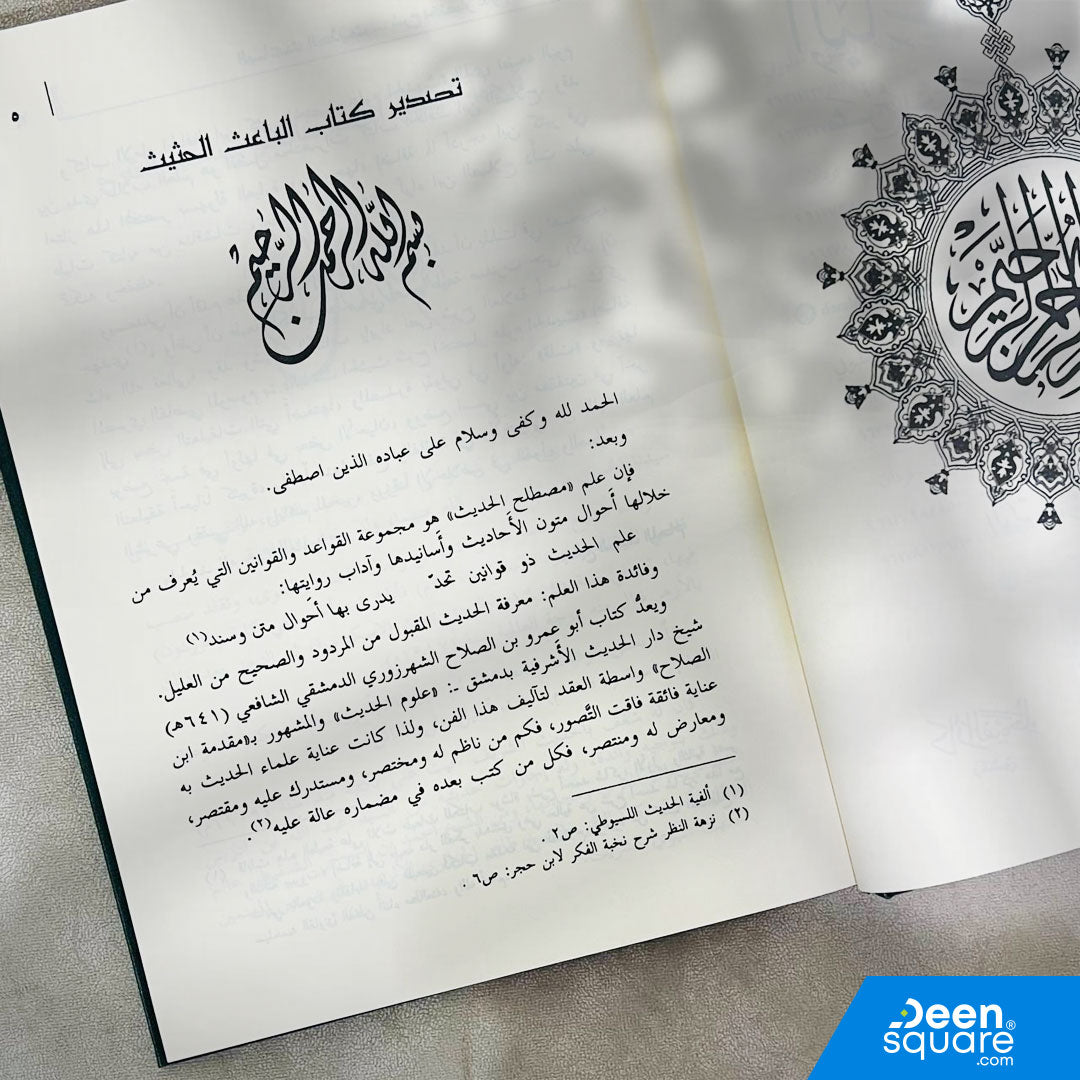 ٥
تصدير كتاب الباعث الحثيث
بسم الله الرحمن الرحيم
الحمد لله وكفى وسلام على عباده الذين اصطفى.
وبعد:
فإن علم «مصطلح الحديث» هو مجموعة القواعد والقوانين التي يُعرف من
خلالها أحوال متون الأَحاديث وأَسانيدها وآداب روايتها:
علم الحديث ذو قوانين تحدّ يدرى بها أحَوال متن وسند(١)
وفائدة هذا العلم: معرفة الحديث المقبول من المردود والصحيح من العليل.
ويعدُّ كتاب أبو عمرو بن الصلاح الشهرزوري الدمشقي الشافعي (٦٤١هـ)
شيخ دار الحديث الأَشرفية بدمشق -: «علوم الحديث» والمشهور بـ«مقدمة ابن
الصلاح» واسطة العقد لتآليف هذا الفن، ولذا كانت عناية علماء الحديث به
عناية فائقة فاقت التَّصور، فكم من ناظم له ومختصر، ومستدرك عليه ومقتصر،
ومعارض له ومنتصر، فكل من كتب بعده في مضماره عالة عليه(٢).
(١) ألفية الحديث اللسيوطي: ص٢ .
(٢) نزهة النظر شرح نخبة الفكر لابن حجر: ص٦ .
بسم الله الرحمن الرحيم
Deen
square®
.com